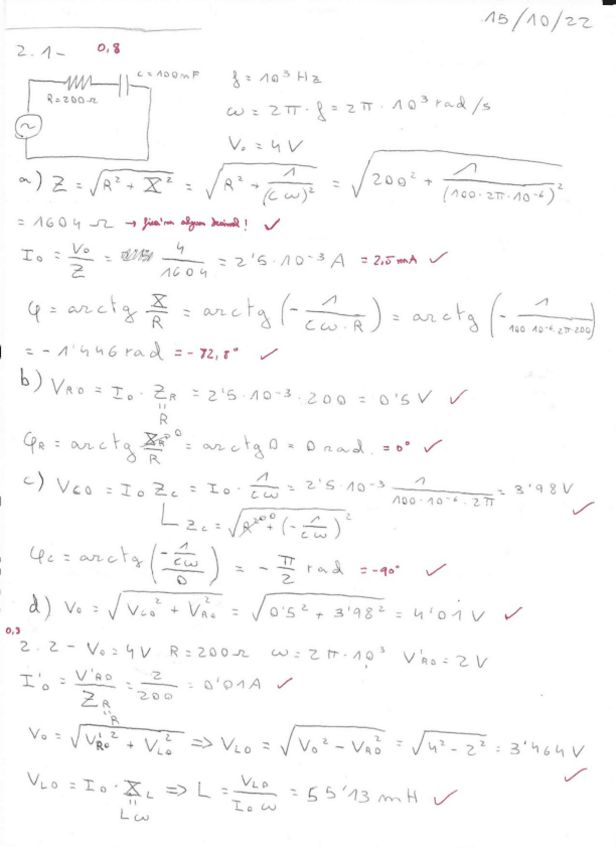 15/10/22
2.1- 0,8
C=100nF
R=200Ω
f = 10³ Hz
ω = 2π·f = 2π·10³ rad/s
V₀ = 4V
a) Z = √(R² + X²) = √(R² + 1/(Cω)²) = √(200² + 1/(100·2π·10⁻⁶)²)
= 1604 Ω → ¡ficar algun decimal! ✓
I₀ = V₀/Z = 4/1604 = 2'5·10⁻³ A = 2,5 mA ✓
φ = arctg X/R = arctg (-1/(Cω·R)) = arctg (-1/(100·10⁻⁶·2π·200))
= -1'446 rad = -82,8° ✓
b) V_R0 = I₀·Z_R = 2'5·10⁻³·200 = 0'5V ✓
=
R
φ_R = arctg X_R/R = arctg 0 = 0 rad. = 0° ✓
c) V_C0 = I₀ Z_C = I₀·1/(Cω) = 2'5·10⁻³ 1/(100·10⁻⁶·2π) = 3'98V ✓
Z_C = √(R² + (-1/(Cω))²)
φ_C = arctg ((-1/(Cω))/0) = -π/2 rad = -90° ✓
d) V₀ = √(V_C0² + V_R0²) = √(0'5² + 3'98²) = 4'01V ✓
0,3
2.2- V₀=4V R=200Ω ω=2π·10³ V'_R0=2V
I'₀ = V'_R0/Z_R = 2/200 = 0'01A ✓
=
R
V₀ = √(V'_R0² + V_L0²) => V_L0 = √(V₀² - V_R0²) = √(4² - 2²) = 3'464V ✓
V_L0 = I₀·X_L => L = V_L0/(I₀ω) = 55'13 mH ✓
=
Lω